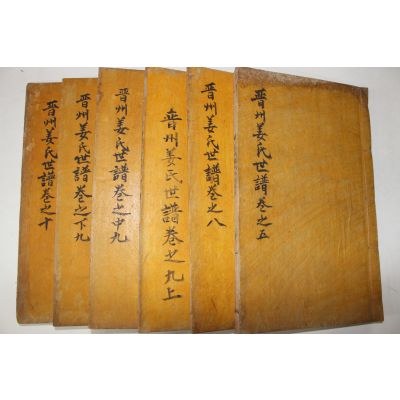 晉州姜氏世譜 卷之五
晉州姜氏世譜卷之八
晉州姜氏世譜卷之九上
晉州姜氏世譜卷之中九
晉州姜氏世譜卷之下九
晉州姜氏世譜卷之十